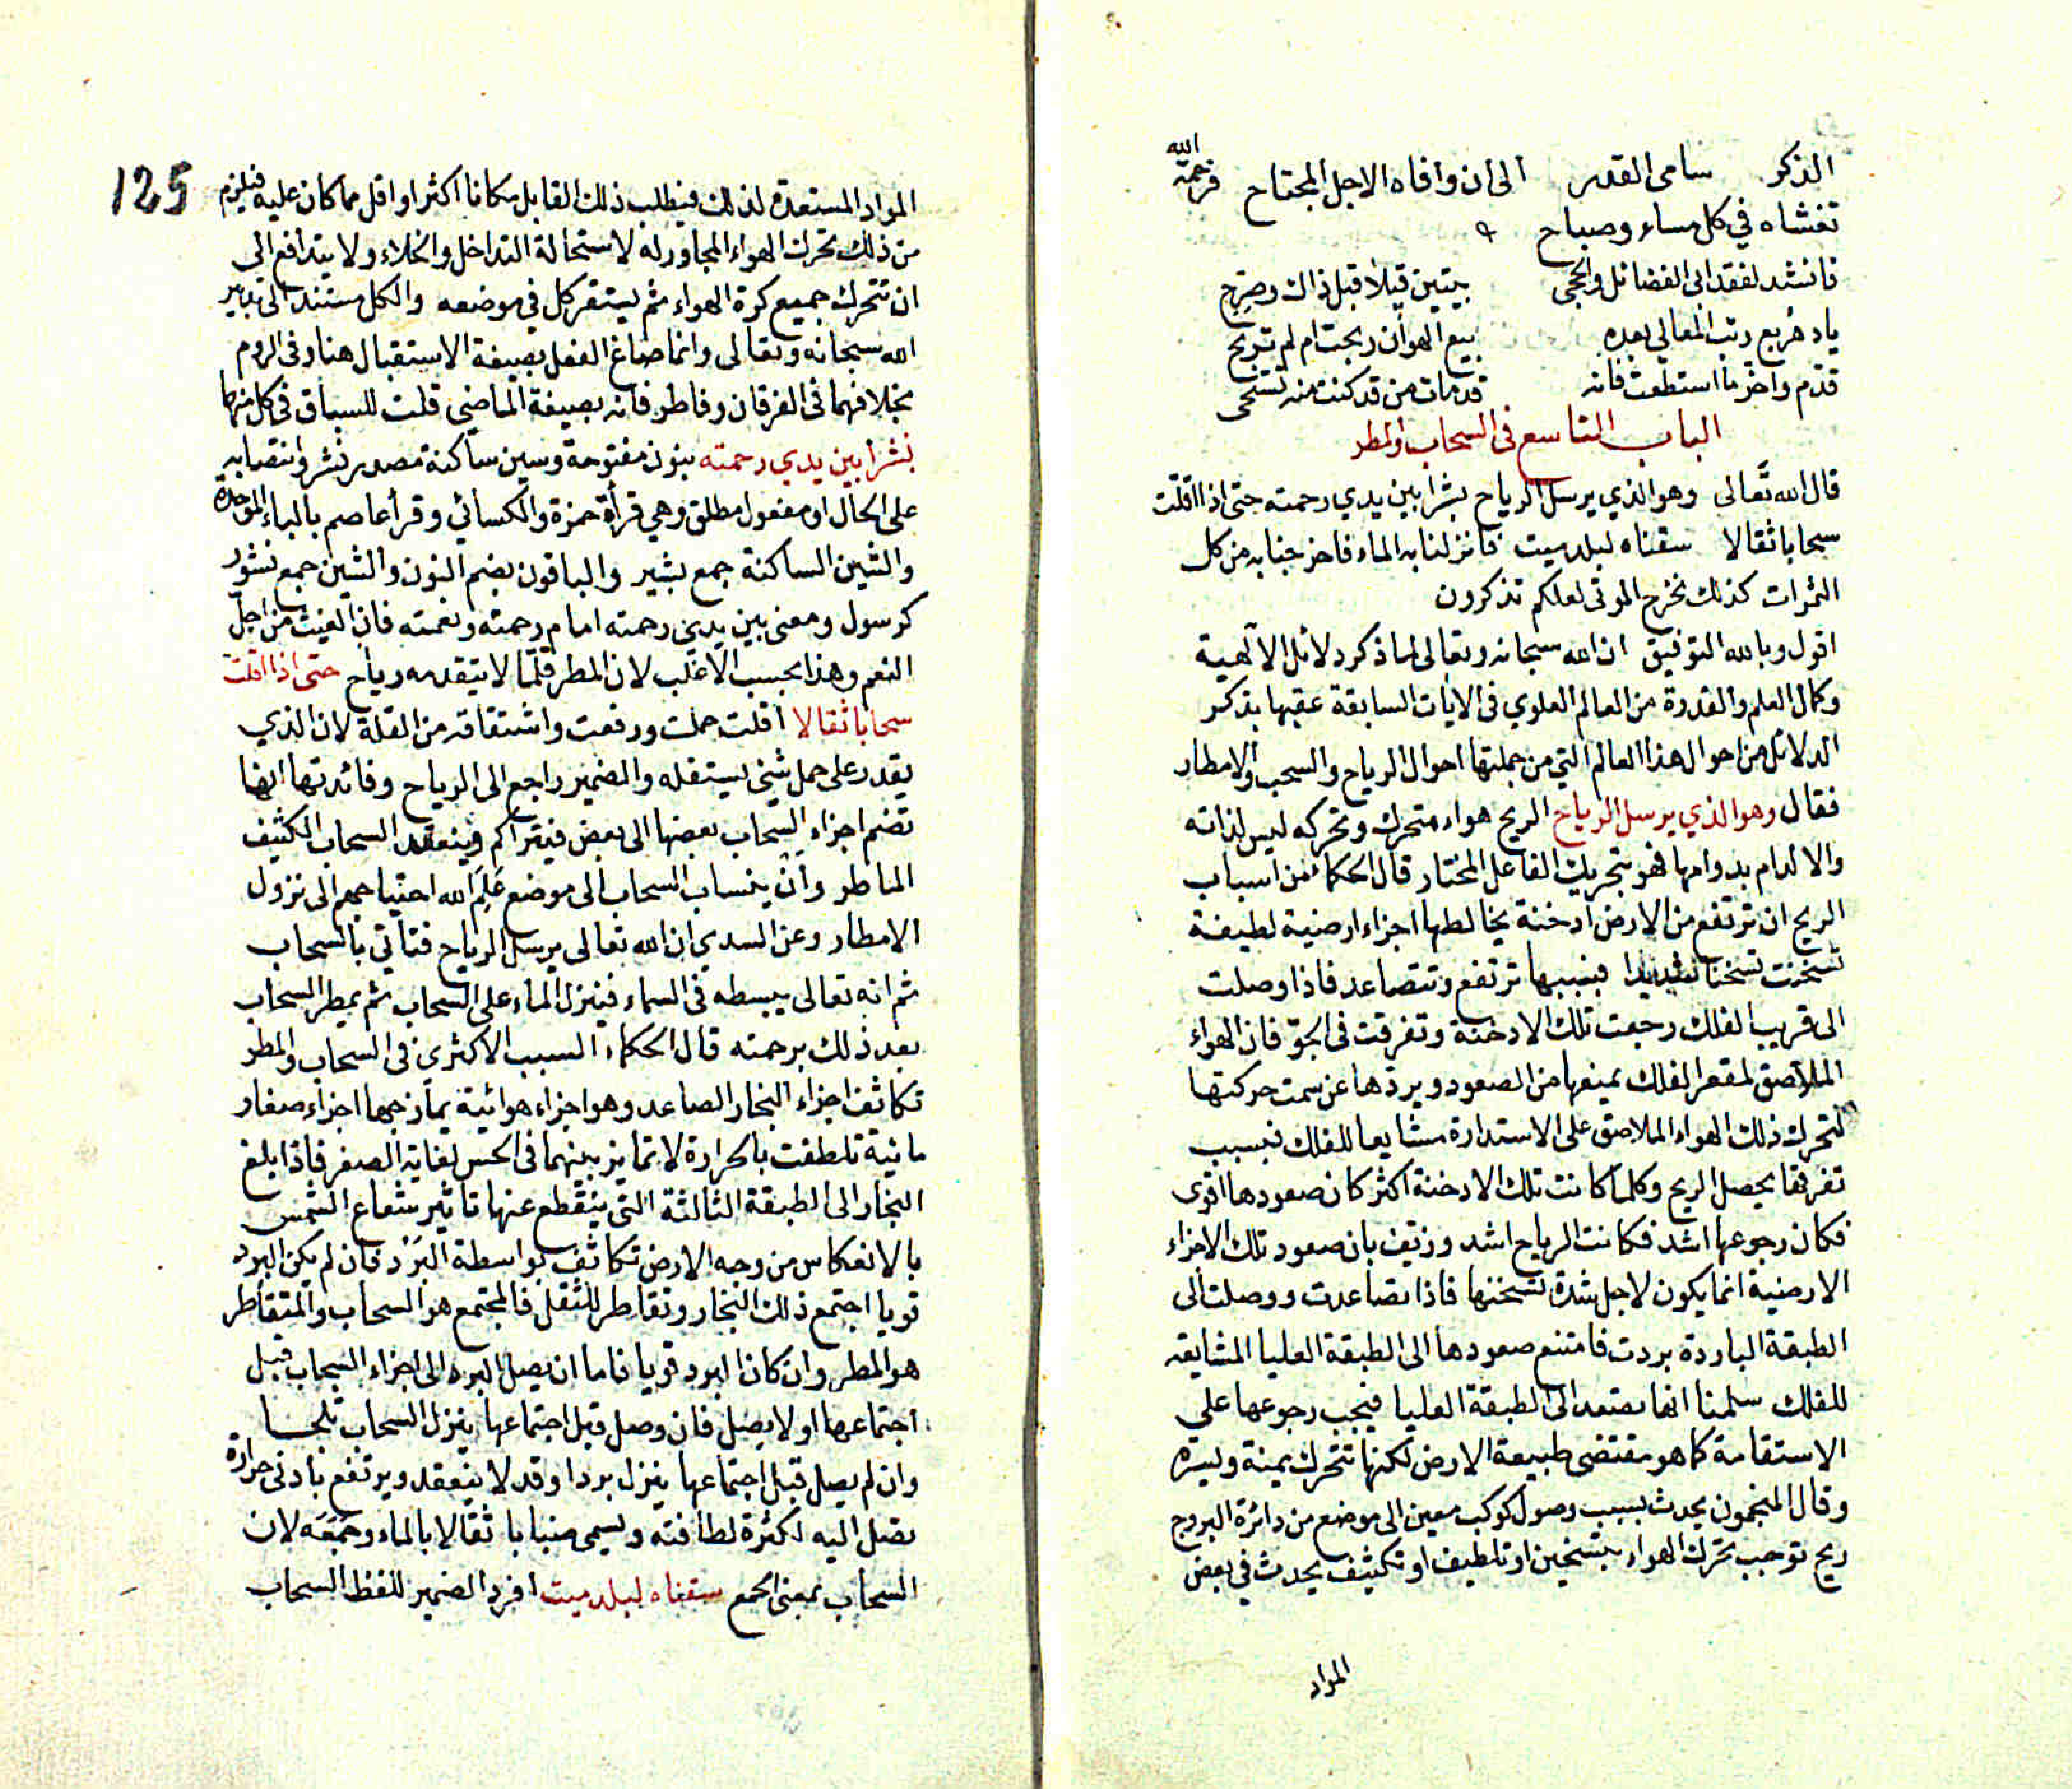 الذكر سامى القدر الى ان وافاه الاجل المجتاح فرحمة الله
تغشاه في كل مساء وصباح
فانشد لفقد ابى الفضائل والحجى بيتين قيلا قبل ذاك وصرح
يا دهر بع رتب المعالي بعده بيع الهوان ربحت ام لم تربح
قدم واخر ما استطعت فانه قد مات من قد كنت منه تستحى
الباب التاسع فى السحاب والمطر
قال الله تعالى وهو الذي يرسل الرياح بشرا بين يدي رحمته حتى اذا اقلت
سحابا ثقالا سقناه لبلد ميت فانزلنا به الماء فاخرجنا به من كل
الثمرات كذلك نخرج الموتى لعلكم تذكرون
اقول وبالله التوفيق ان الله سبحانه وتعالى لما ذكر دلائل الآلهية
وكمال العلم والقدرة من العالم العلوي فى الايات السابقة عقبها بذكر
الدلائل من احوال هذا العالم التي من جملتها احوال الرياح والسحب والامطار
فقال وهو الذي يرسل الرياح الريح هواء متحرك وتحركه ليس لذاته
والا لدام بدوامها فهو بتحريك الفاعل المختار قال الحكماء من اسباب
الريح ان ترتفع من الارض ادخنة يخالطها اجزاء ارضية لطيفة
تسخنت تسخنا شديدا فبسببها ترتفع وتتصاعد فاذا وصلت
الى قريب الفلك رجعت تلك الادخنة وتفرقت فى الجو فان الهواء
الملاصق لمقعر الفلك يمنعها من الصعود ويردها عن سمت حركتها
لتحرك ذلك الهواء الملاصق على الاستدارة مشايعا للفلك فبسبب
تفرقها يحصل الريح وكلما كانت تلك الادخنة اكثر كان صعودها اقوى
فكان رجوعها اشد فكانت الرياح اشد وزيف بان صعود تلك الاجزاء
الارضية انما يكون لاجل شدة تسخنها فاذا تصاعدت ووصلت الى
الطبقة الباردة بردت فامتنع صعودها الى الطبقة العليا المشايعة
للفلك سلمنا انها تصعد الى الطبقة العليا فيجب رجوعها على
الاستقامة كما هو مقتضى طبيعة الارض لكنها تتحرك يمنة ويسرة
وقال المنجمون يحدث بسبب وصول كوكب معين الى موضع من دائرة البروج
ريح توجب تحرك الهواء بتسخين او تلطيف او تكثيف يحدث في بعض
المواد
125
المواد المستعدة لذلك فيطلب ذلك القابل مكانا اكثر او اقل مما كان عليه فيلزم
من ذلك تحرك الهواء المجاور له لاستحالة التداخل والخلاء ولا يتدافع الى
ان تتحرك جميع كرة الهواء ثم يستقر كل في موضعه والكل مستند الى تدبير
الله سبحانه وتعالى وانما صاغ الفعل بصيغة الاستقبال هنا وفى الروم
بخلافهما فى الفرقان وفاطر فانه بصيغة الماضي قلت للسباق فى كل منهما
نشرا بين يدي رحمته بنون مفتوحة وسين ساكنة مصدر نشر وانتصابه
على الحال او مفعول مطلق وهي قرأة حمزة والكسائي وقرأ عاصم بالباء الموحدة
والشين الساكنة جمع بشير والباقون بضم النون والشين جمع نشور
كرسول ومعنى بين يدي رحمته امام رحمته ونعمته فان الغيث من اجل
النعم وهذا بحسب الاغلب لان المطر قلما لا يتقدمه رياح حتى اذا اقلت
سحابا ثقالا اقلت حملت ورفعت واشتقاقه من القلة لان الذي
يقدر على حمل شئ يستقله والضمير راجع الى الرياح وفائدتها انها
تضم اجزاء السحاب بعضها الى بعض فيتراكم وينعقد السحاب الكثيف
الماطر وان ينساب السحاب الى موضع علم الله احتياجهم الى نزول
الامطار وعن السدي ان الله تعالى يرسل الرياح فتأتي بالسحاب
ثم انه تعالى يبسطه فى السماء فينزل الماء على السحاب ثم يمطر السحاب
بعد ذلك برحمته قال الحكماء السبب الاكثرى فى السحاب والمطر
تكاثف اجزاء البخار الصاعد وهو اجزاء هوائية يمازجها اجزاء صغار
مائية تلطفت بالحرارة لا تمايز بينهما فى الحس لغاية الصغر فاذا بلغ
البخار الى الطبقة الثالثة التى ينقطع عنها تاثير شعاع الشمس
بالانعكاس من وجه الارض تكاثف بواسطة البرد فان لم يكن البرد
قويا اجتمع ذلك البخار وتقاطر للثقل فالمجتمع هو السحاب والمتقاطر
هو المطر وان كان البرد قويا فاما ان يصل البرد الى اجزاء السحاب قبل
اجتماعها او لا يصل فان وصل قبل اجتماعها ينزل السحاب ثلجا
وان لم يصل قبل اجتماعها ينزل بردا وقد لا ينعقد ويرتفع بادنى حرارة
تصل اليه لكثرة لطافته ويسمى ضبابا ثقالا بالماء وجمعه لان
السحاب بمعنى الجمع سقناه لبلد ميت افرد الضمير للفظ السحاب